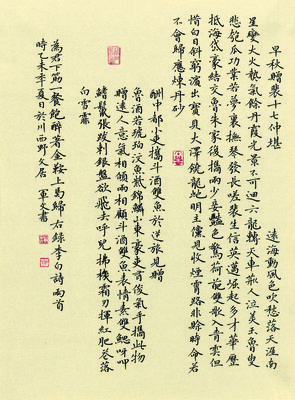 早秋贈裴十七仲堪
遠海動風色吹愁落天涯南
星變大火熱氣餘丹霞光景不可迴六龍轉天車荊人泣美玉魯叟
悲匏瓜功業若夢裏撫琴發長嗟裴生信英邁崛起多才華歷
抵海岱豪結交魯朱家復攜兩少妾艷色驚荷葩雙歌入青雲但
惜白日斜窮溟出寶貝大澤饒龍蛇明主儻見收煙霄路非賒時命若
不會歸應煉丹砂
酬中都小吏攜斗酒雙魚於逆旅見贈
魯酒若琥珀汶魚紫錦鱗山東豪吏有俊氣手攜此物
贈遠人意氣相傾兩相顧斗酒雙魚表情素雙鰓呀呷
鰭鬣張跋剌銀盤欲飛去呼兒拂機霜刃揮紅肥花落
白雪霏
為君下筯一餐飽醉著金鞍上馬歸右錄李白詩兩首
時乙未年夏日於川西野文居 軍文書